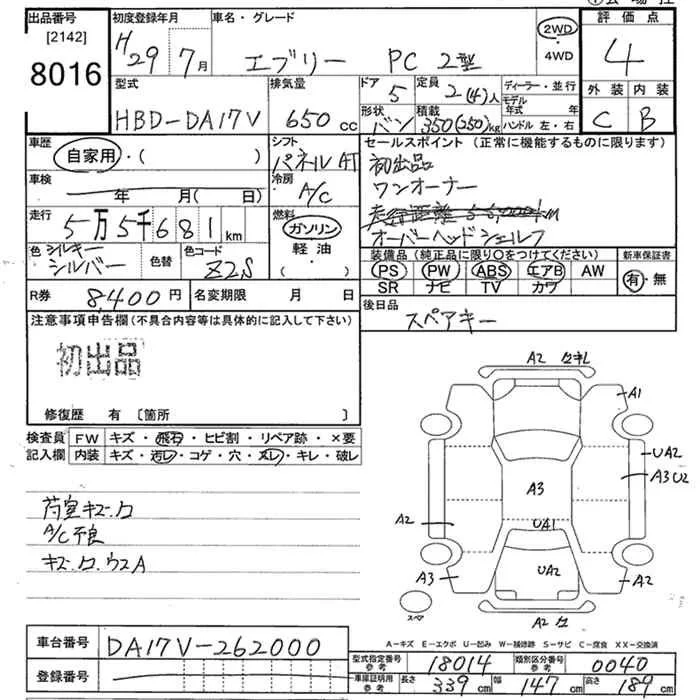 出品番号 [2142] 8016
初度登録年月 H29 7月
車名・グレード エブリー PC 2型
2WD・4WD
評価点 4
外装 C 内装 B
型式 HBD-DA17V
排気量 650 cc
ドア 5
定員 2(4)人
形状 バン
積載 350(250)kg
ディーラー・並行
モデル年式 年
ハンドル 左・右
車歴 自家用・( )
シフト パネルAT
車検 年 月( 日)
冷房 A/C
走行 5万5千681km
燃料 ガソリン・軽油・( )
色 シルキーシルバー 色替
色コード Z2S
R券 8,400円
名変期限 月 日
セールスポイント (正常に機能するものに限ります)
初出品
ワンオーナー
オーバーヘッドシェルフ
装備品 (純正品に限り○をつけてください)
新車保証書 有・無
PS PW ABS エアB AW
SR ナビ TV カワ
後日品 スペアキー
注意事項申告欄 (不具合内容等は具体的に記入して下さい)
初出品
修復歴 有 〔箇所 〕
検査員記入欄
FW キズ・飛石・ヒビ割・リペア跡・×要
内装 キズ・汚レ・コゲ・穴・ヌレ・キレ・破レ
荷室キズ・凹
A/C不良
キズ・凹・ウスA
A2
A1
UA2
A3 U2
A3
A2
UA1
UA2
A3
A2
A2
スペア
A-キズ E-エクボ U-凹み W-補修跡 S-サビ C-腐食 XX-交換済
車台番号 DA17V-262000
登録番号
型式指定番号 参考 18014
類別区分番号 参考 0040
車庫証明用 参考 長さ 339cm 幅 147cm 高さ 189cm